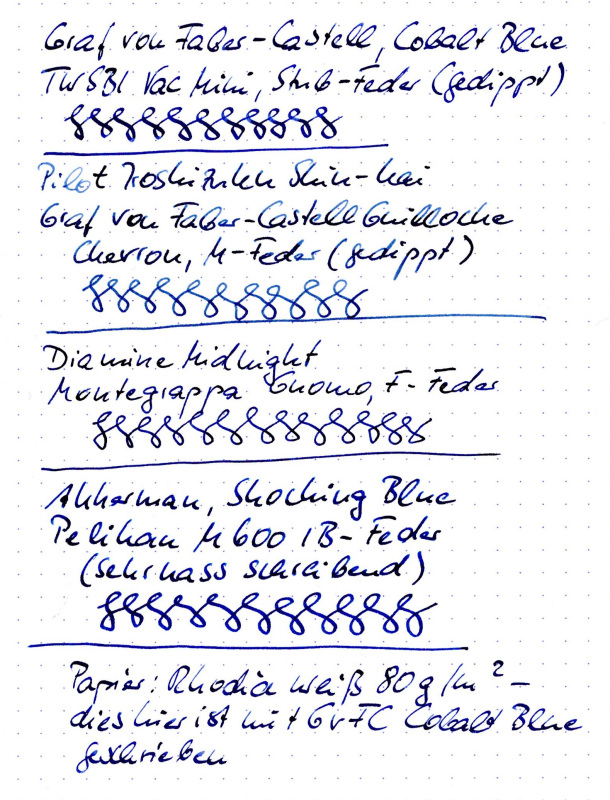 Graf von Faber-Castell, Cobalt Blue
TWSBI Vac Mini, Stub-Feder (gedippt)
Pilot Iroshizuku Shin-kai
Graf von Faber-Castell Guilloche
Chevron, M-Feder (gedippt)
Diamine Midnight
Montegrappa Gnomo, F-Feder
Akkerman, Shocking Blue
Pelikan M600 IB-Feder
(sehr nass schreibend)
Papier: Rhodia weiß 80g/m² -
dies hier ist mit GvFC Cobalt Blue
geschrieben